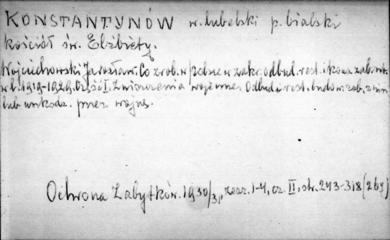 KONSTANTYNÓW w. lubelski p. bialski
kościół św. Elżbiety.
Wojciechowski Jarosław. Co zrob. w Polsce w zakr. odbud. rest. i kons. zab.
w l. 1919-1929. Część I. Zniszczenia wojenne. Odbud. i rest. budow. zab. zniszcz.
lub uszkodz. przez wojnę.
Ochrona Zabytków. 1930/31, zesz. 1-4, cz. II, str. 243-318 (269)